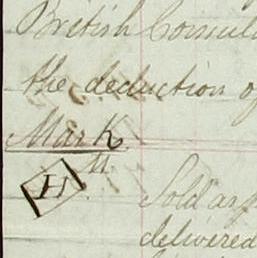 British Consul
the deduction of
Mark
H
Sold as p
delivered